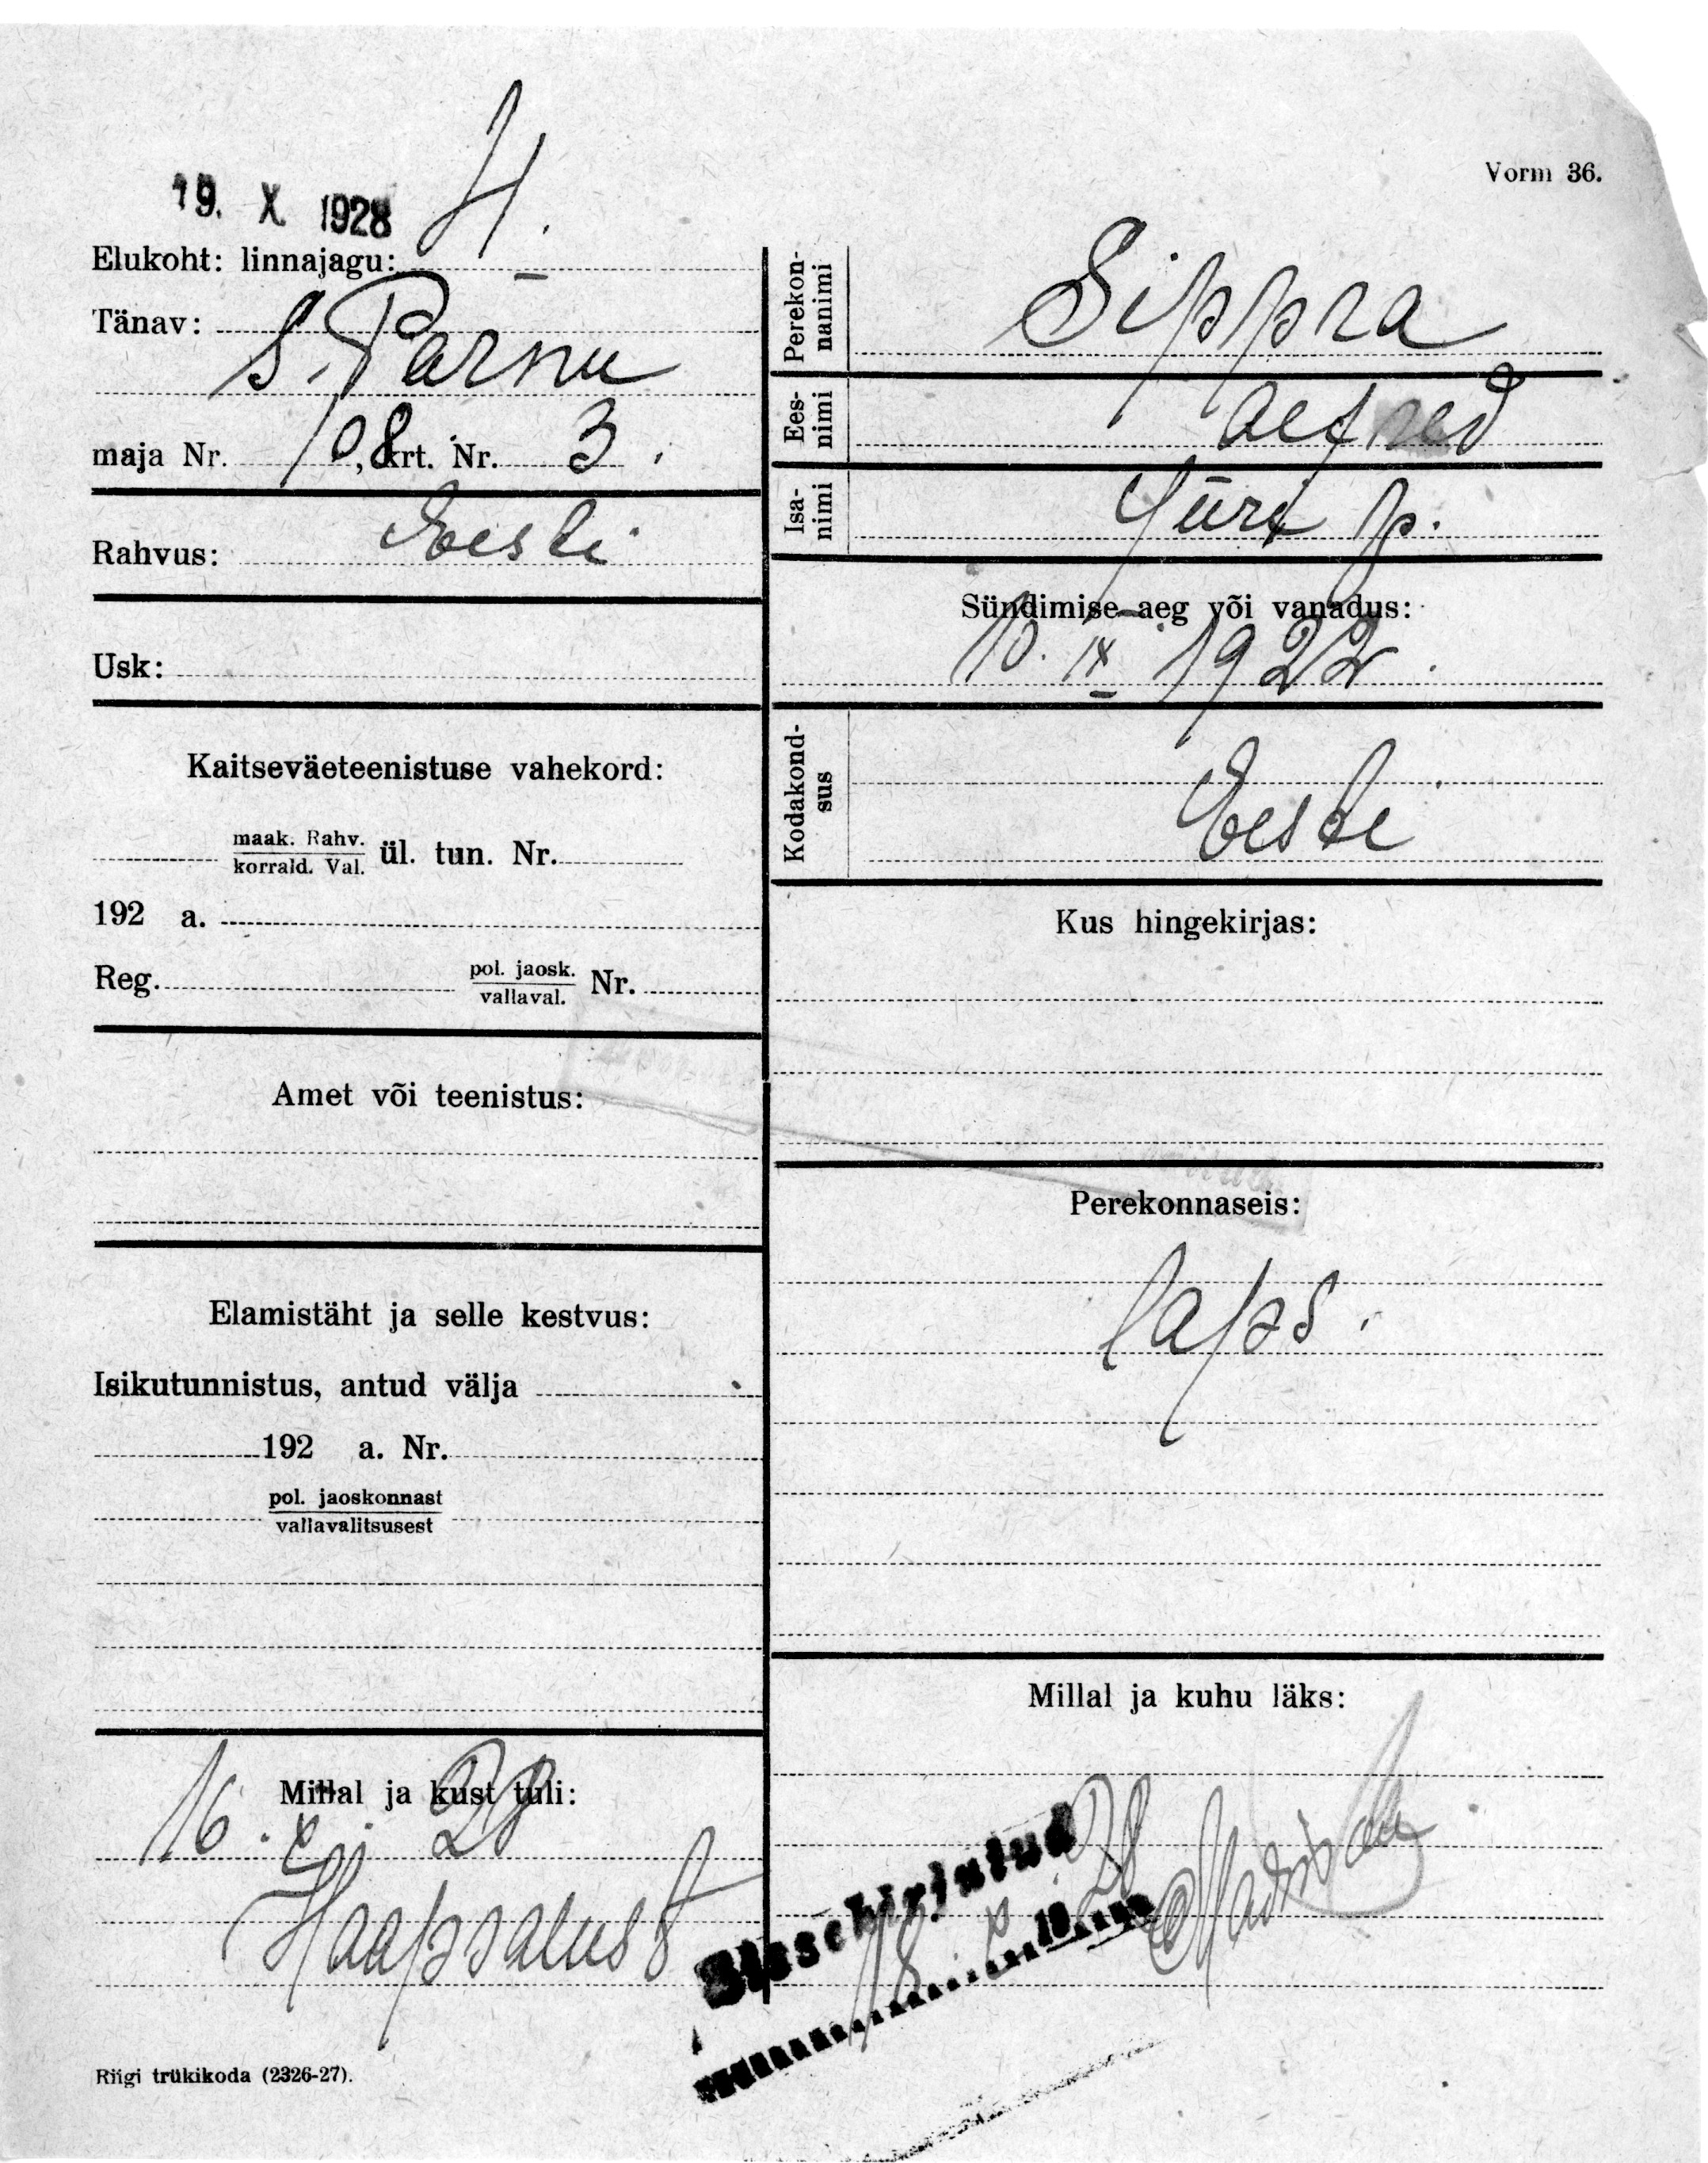 Vorm 36.
19. X 1928
Elukoht: linnajagu: H.
Tänav: S. Pärnu
maja Nr. 108, krt. Nr. 3.
Rahvus: Eesti
Usk:
Kaitseväeteenistuse vahekord:
maak. Rahv.
korrald. Val. ül. tun. Nr.
192 a.
Reg. pol. jaosk.
vallaval. Nr.
Amet või teenistus:
Elamistäht ja selle kestvus:
Isikutunnistus, antud välja
192 a. Nr.
pol. jaoskonnast
vallavalitsusest
Millal ja kust tuli:
16. X. 28
Haapsalust
Riigi trükikoda (2326-27).
Perekon-
nanimi
Sippra
Ees-
nimi
Alfred
Isa-
nimi
Jüri p.
Sündimise aeg või vanadus:
10. IX 1922.
Kodakond-
sus
Eesti
Kus hingekirjas:
Perekonnaseis:
laps.
Millal ja kuhu läks:
Sissekirjutud
18. X 28